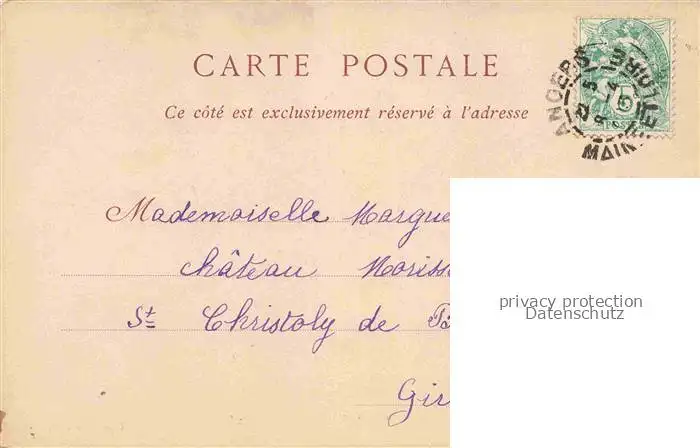 CARTE POSTALE
Ce côté est exclusivement réservé à l'adresse
ANGERS
MAINE ET LOIRE
5
Mademoiselle Margue
château Moriss
St Christoly de
Gir
privacy protection
Datenschutz